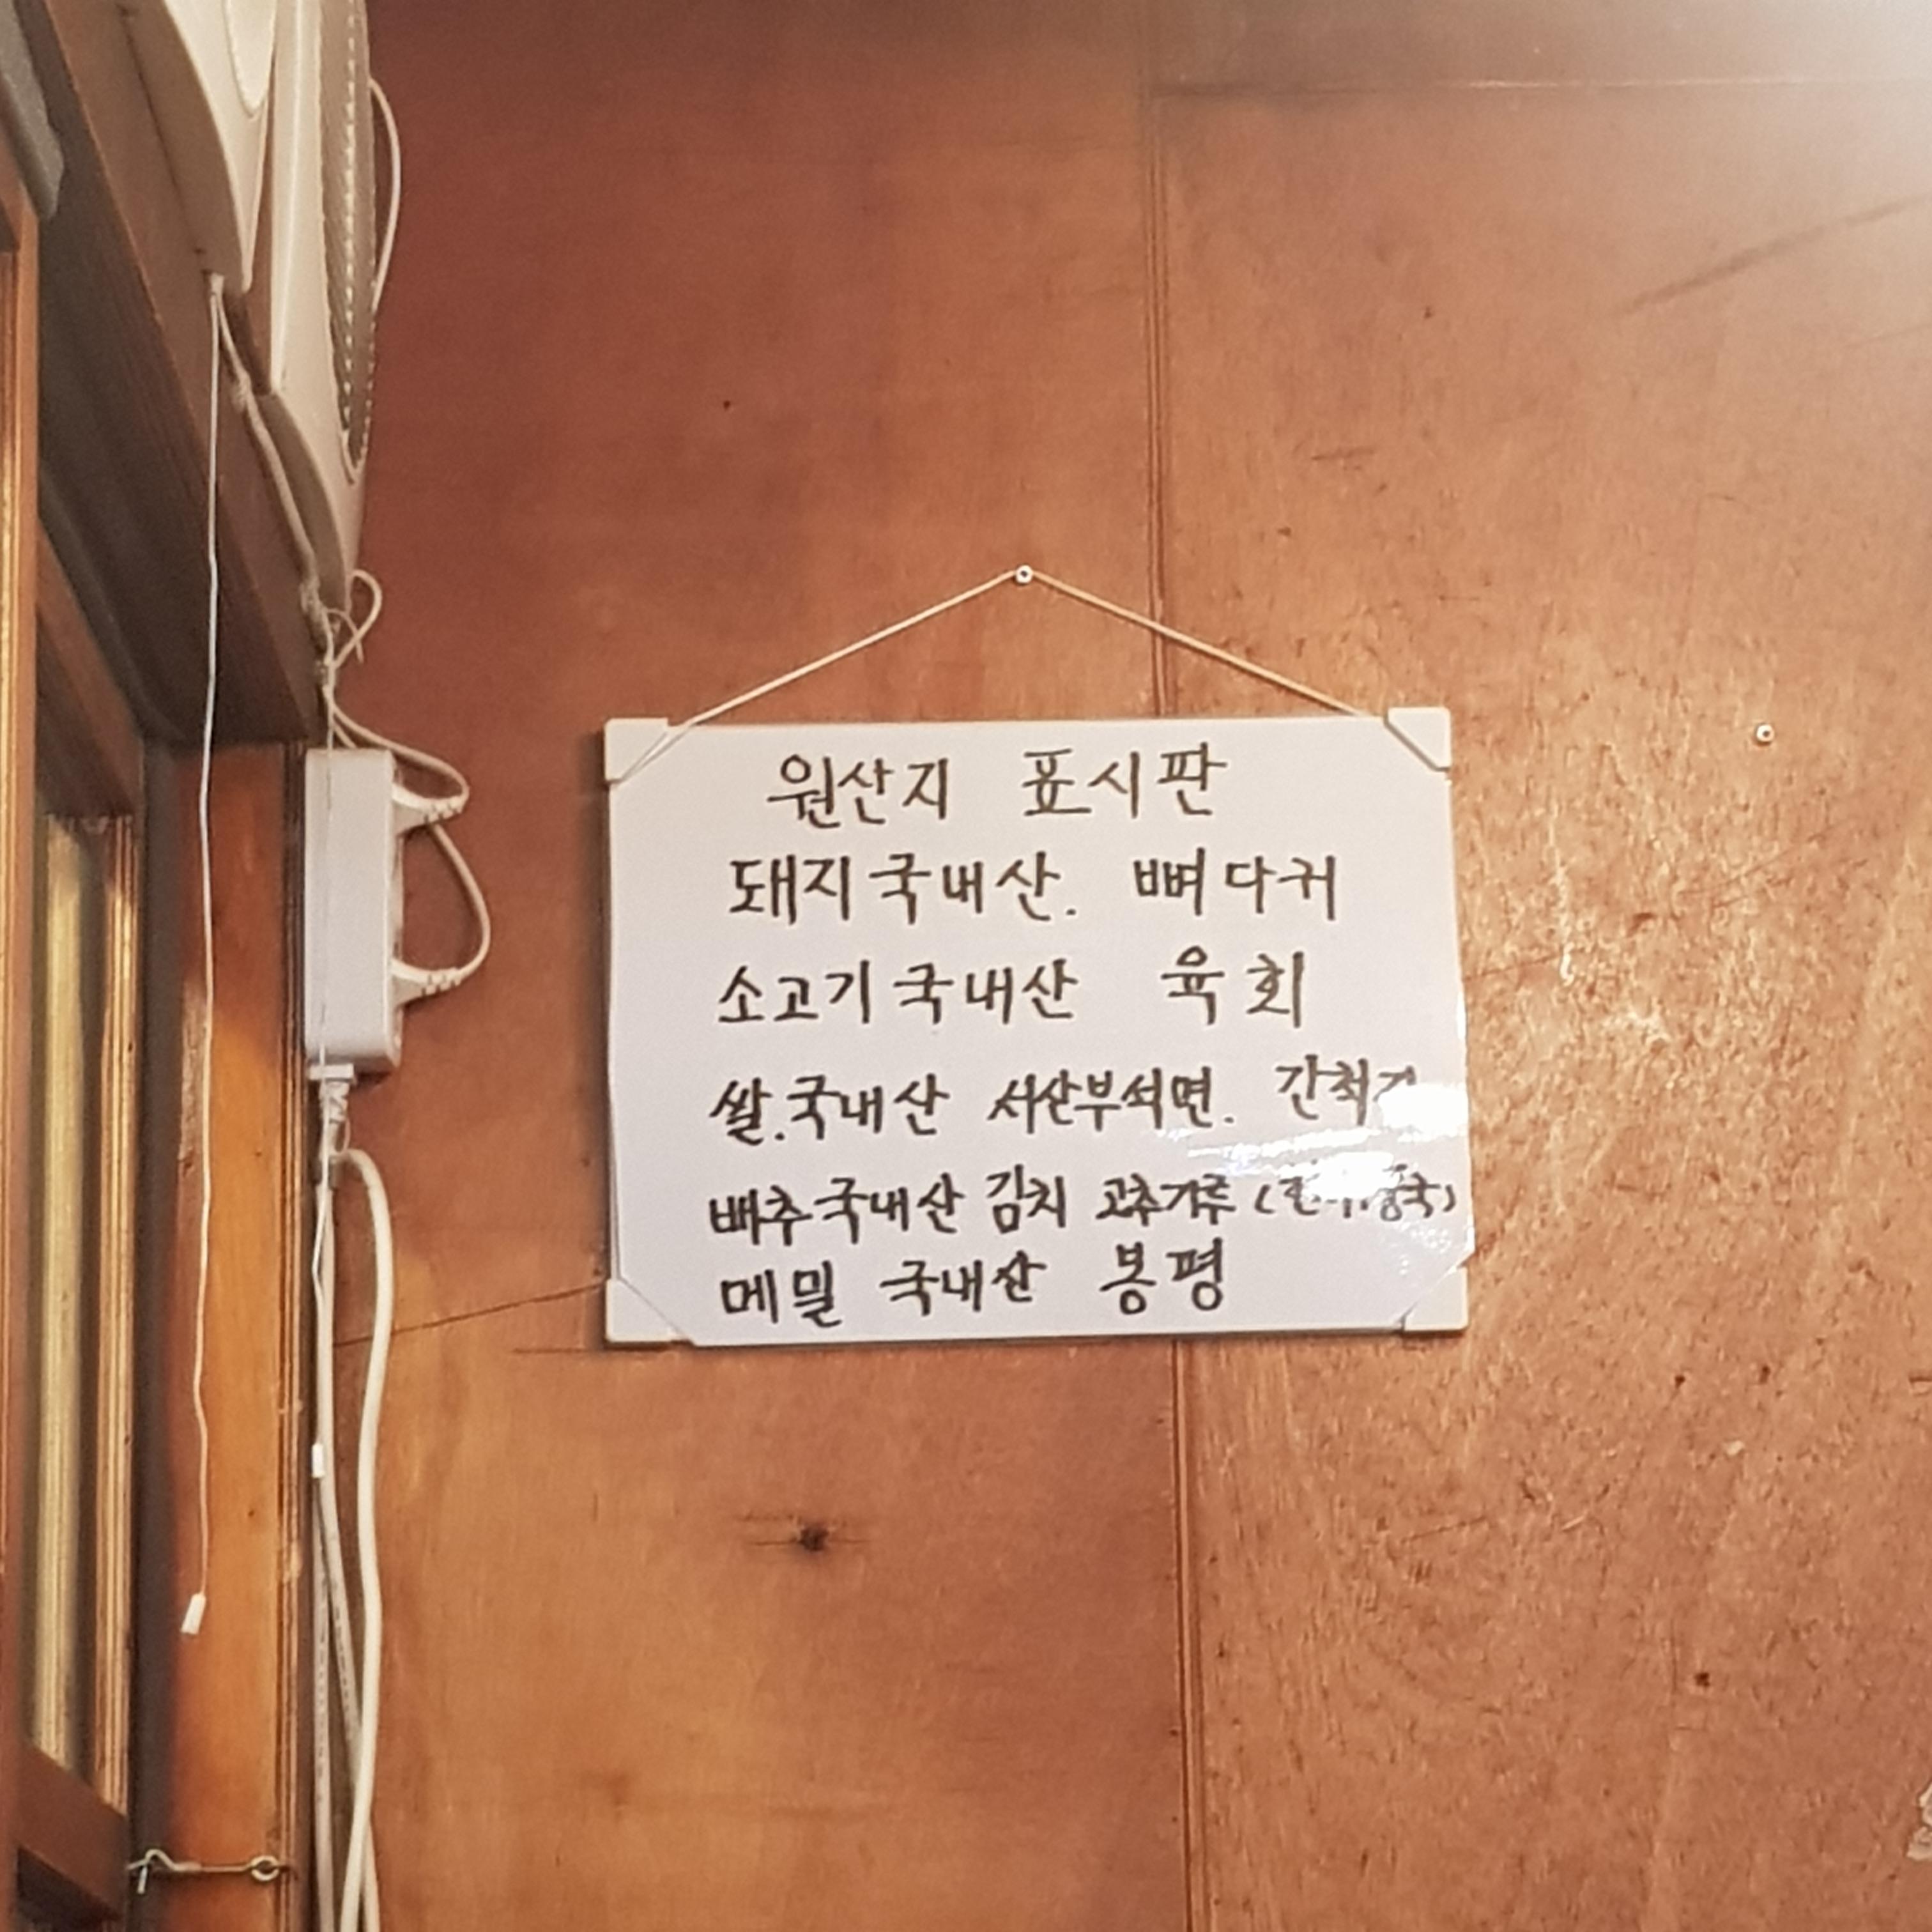 원산지 표시판
돼지국내산. 뼈다귀
소고기국내산 육회
쌀.국내산 서산부석면.
배추국내산 김치 고추가루
메밀 국내산 봉평